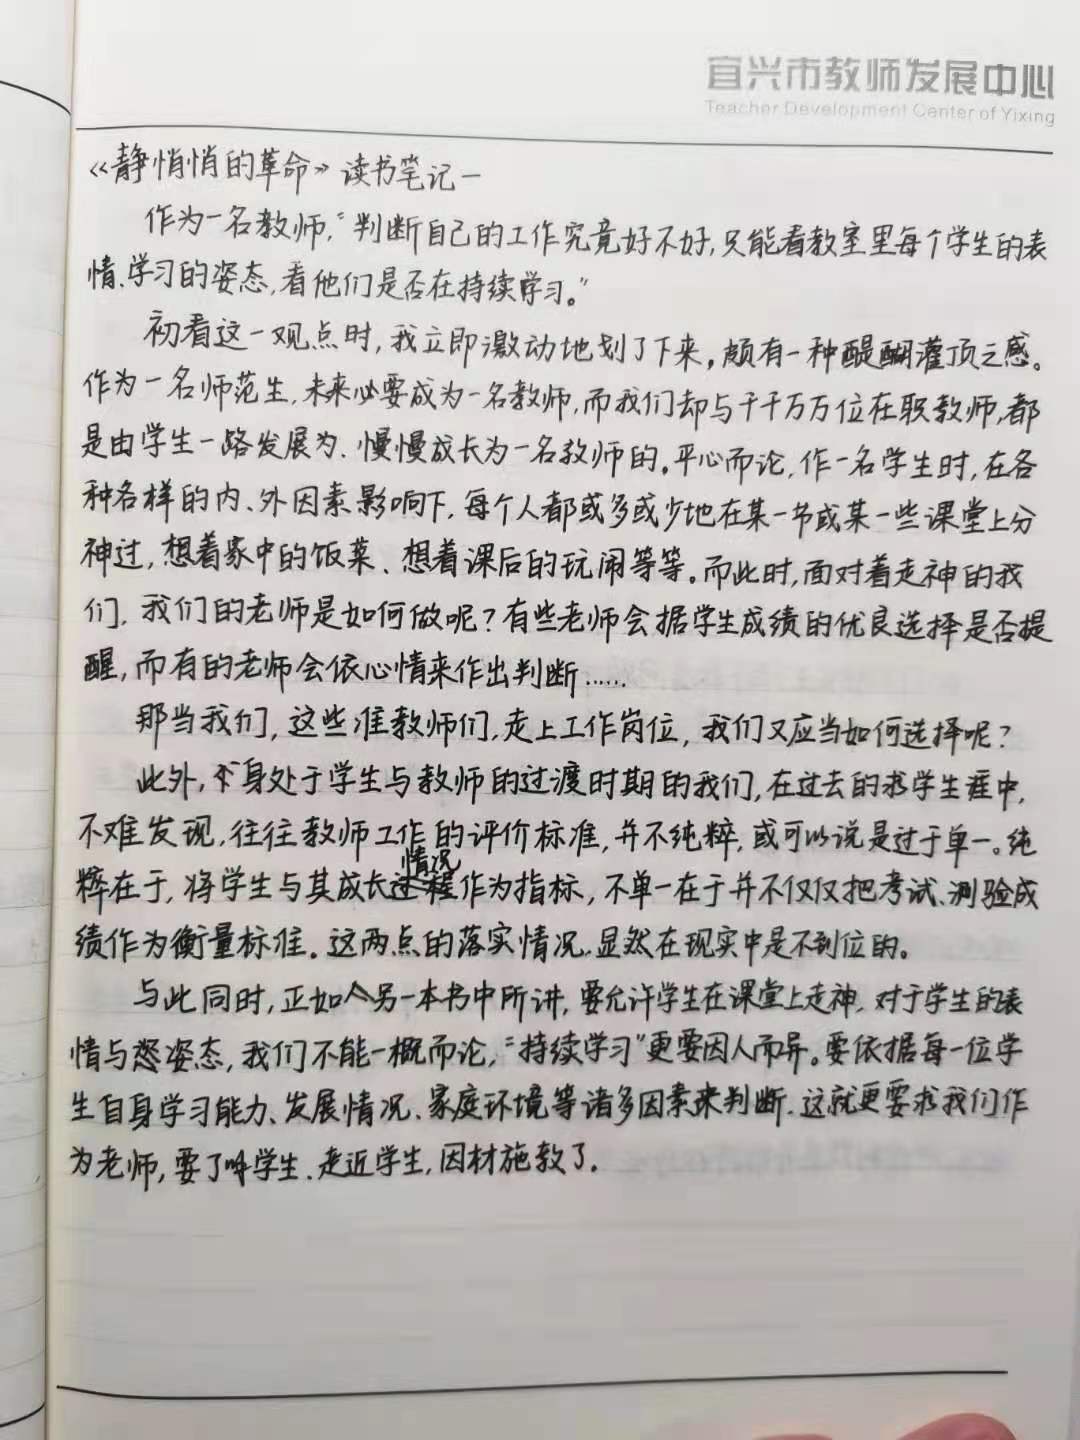 宜兴市教师发展中心
Teacher Development Center of Yixing
《静悄悄的革命》读书笔记一
作为一名教师，“判断自己的工作究竟好不好，只能看教室里每个学生的表
情、学习的姿态，看他们是否在持续学习。”
初看这一观点时，我立即激动地划了下来，颇有一种醍醐灌顶之感。
作为一名师范生，未来必要成为一名教师，而我们却与千千万万位在职教师，都
是由学生一路发展为、慢慢成长为一名教师的。平心而论，作一名学生时，在各
种各样的内、外因素影响下，每个人都或多或少地在某一节或某一些课堂上分
神过，想着家中的饭菜、想着课后的玩闹等等。而此时，面对着走神的我
们，我们的老师是如何做呢？有些老师会据学生成绩的优良选择是否提
醒，而有的老师会依心情来作出判断……
那当我们，这些准教师们，走上工作岗位，我们又应当如何选择呢？
此外，身处于学生与教师的过渡时期的我们，在过去的求学生涯中，
不难发现，往往教师工作的评价标准，并不纯粹，或可以说是过于单一。纯
粹在于，将学生与其成长情况作为指标，不单一在于并不仅仅把考试、测验成
绩作为衡量标准。这两点的落实情况，显然在现实中是不到位的。
与此同时，正如另一本书中所讲，要允许学生在课堂上走神，对于学生的表
情与姿态，我们不能一概而论，“持续学习”更要因人而异。要依据每一位学
生自身学习能力、发展情况、家庭环境等诸多因素来判断，这就更要求我们作
为老师，要了解学生、走近学生，因材施教了。